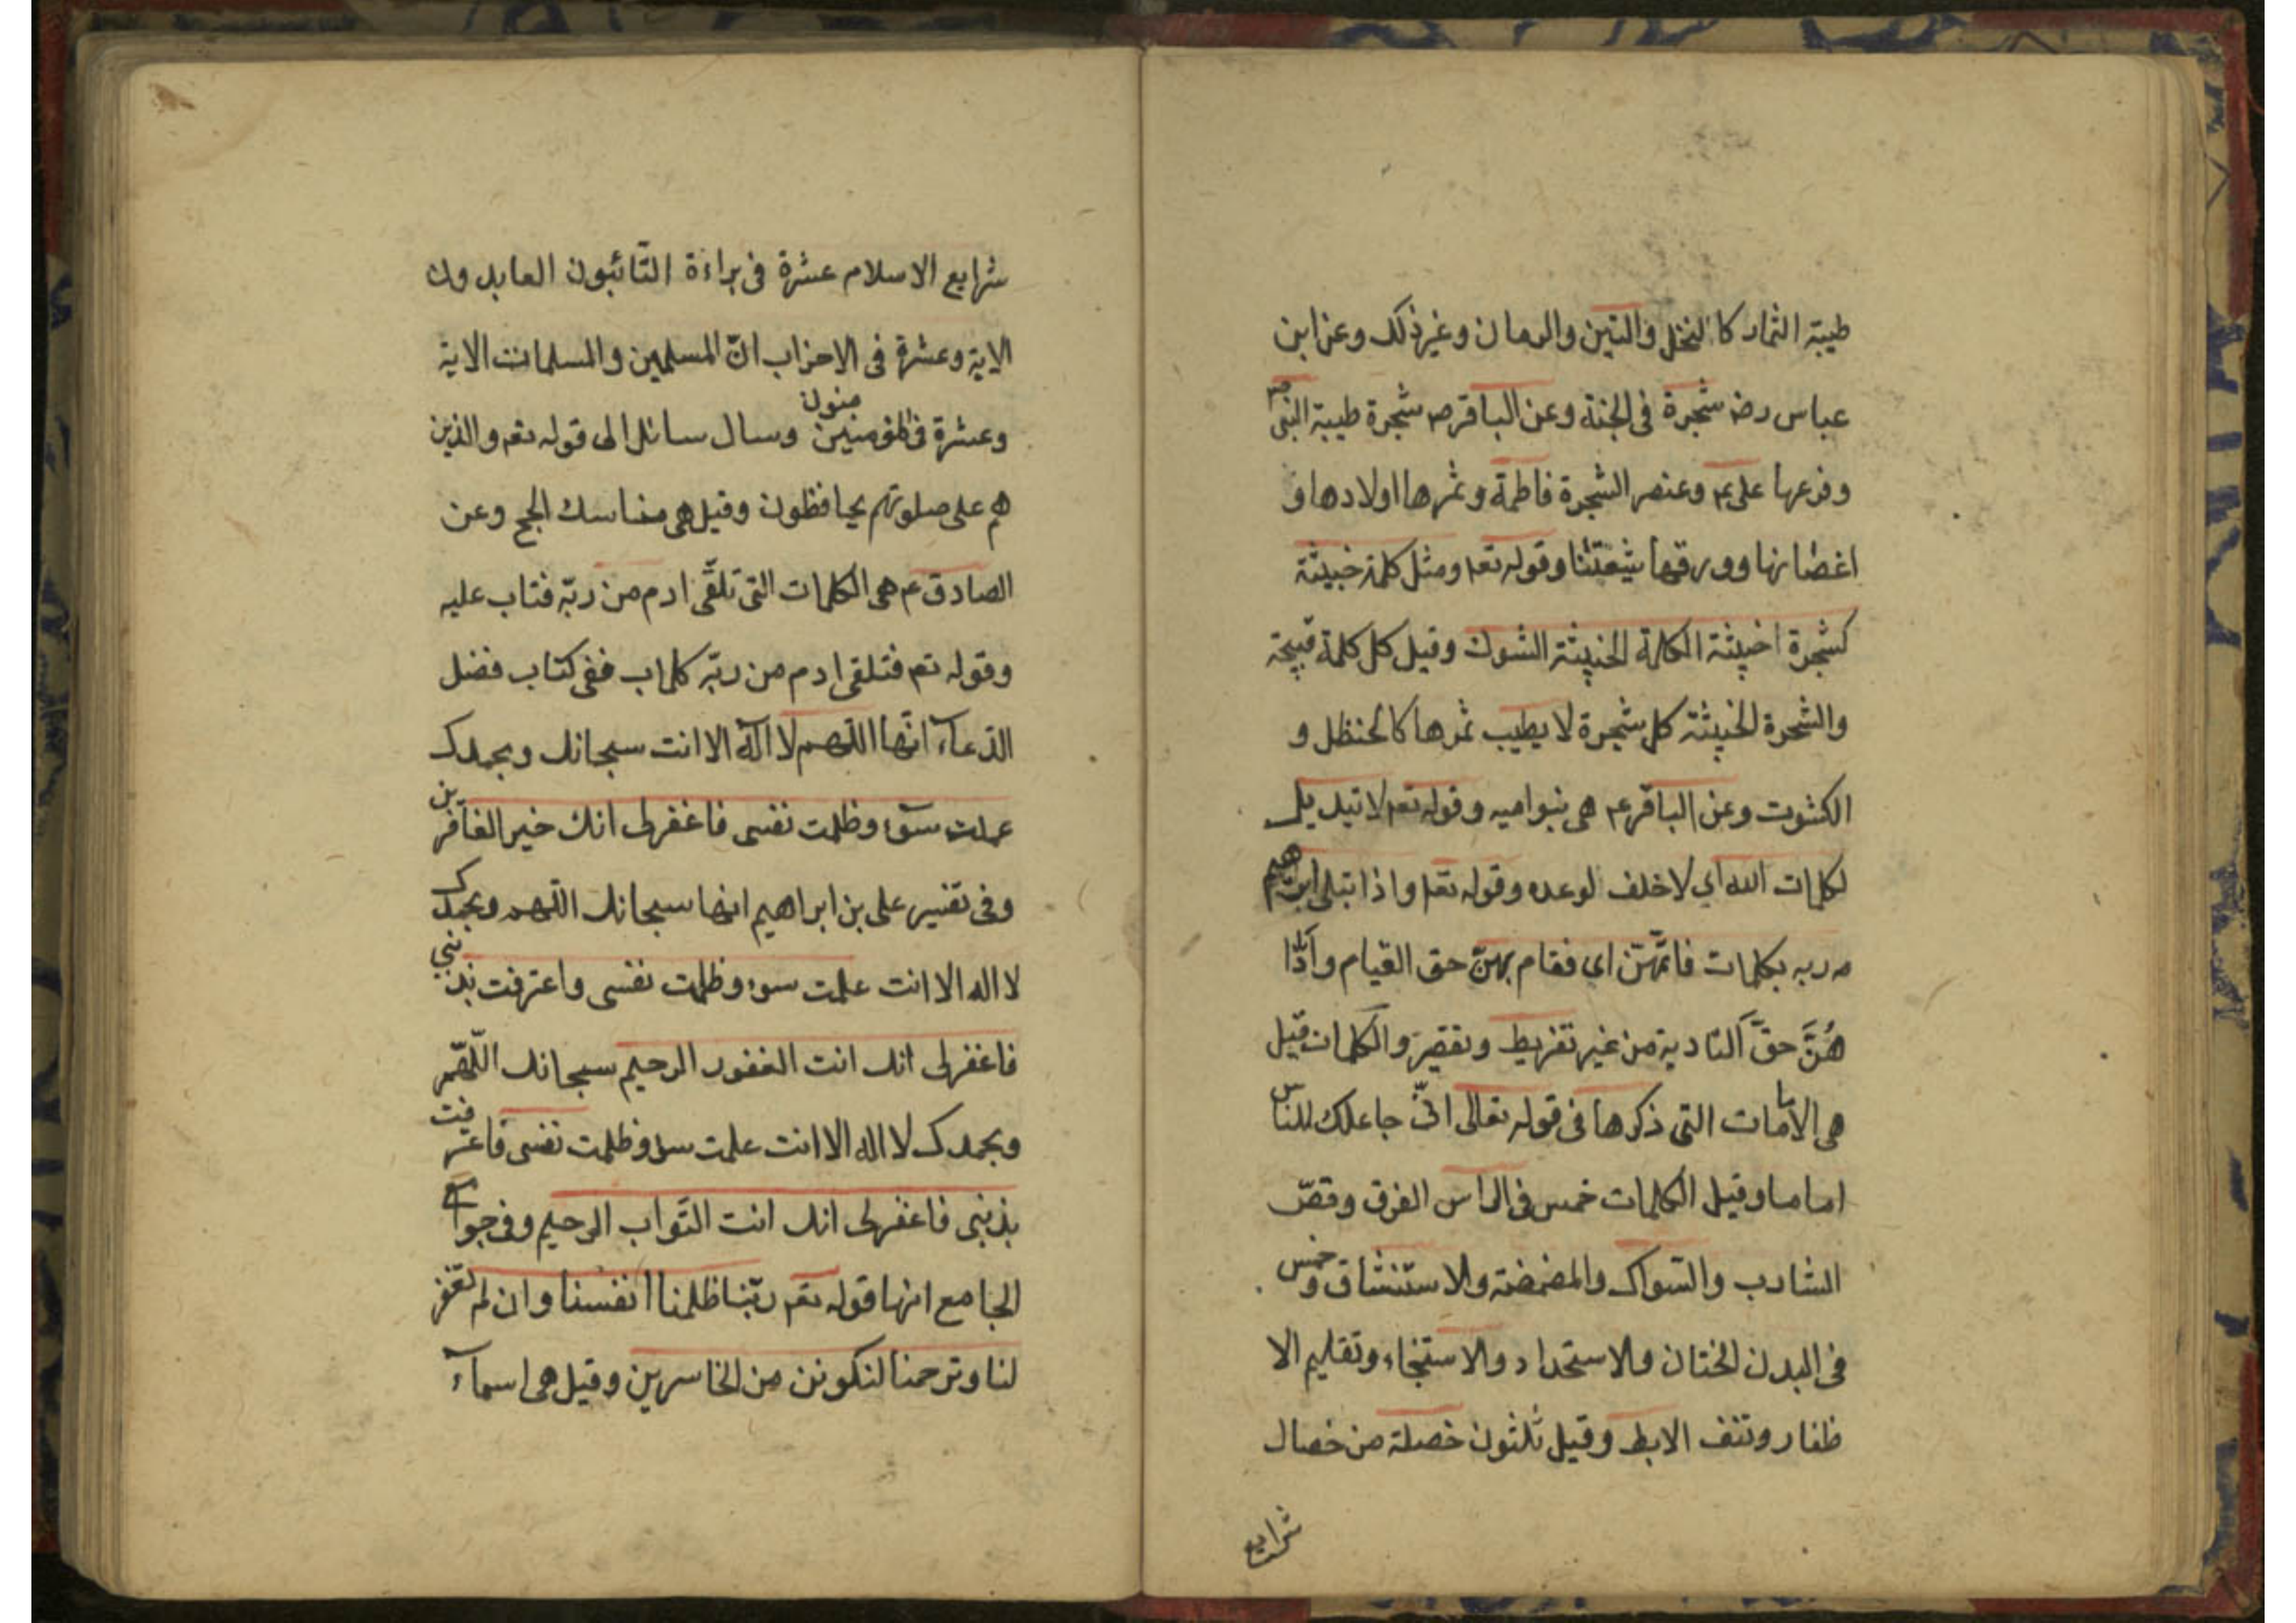 طيبة الثمار كالنخل والتين والرمان وغير ذلك وعن ابن
عباس رضه شجرة في الجنة وعن الباقر ص شجرة طيبة النبى ص
وفرعها على ع وعنصر الشجرة فاطمة وثمرها اولادها و
اغصانها وورقها شيعتنا وقوله تعه ومثل كلمة خبيثة
كشجرة اخبيثة الكلمة الخبيثة الشوك وقيل كل كلمة قبيحة
والشجرة الخبيثة كل شجرة لا يطيب ثمرها كالحنظل و
الكشوت وعن الباقر ع هى بنوا ميه وقوله تعه لا تبديل
لكلمات الله اي لا خلف لوعده وقوله تعه واذ ابتلى ابرهيم
ربه بكلمات فاتمّهنّ اي فقام بهنّ حق القيام وادّا
هُنَّ حقَّ التادية من غير تفريط وتقصير والكلمات قيل
هى الامامات التى ذكرها فى قوله تعالى انّى جاعلك للناس
اماما وقيل الكلمات خمس فى الراس الفرق وقصّ
الشارب والسّواك والمضمضة والاستنشاق وخمس
فى البدن الختان والاستحداد والاستنجاء وتقليم الا
ظفار ونتف الابط وقيل ثلثون خصلة من خصال
شرايع
شرايع الاسلام عشرة فى براءة التّائبون العابدون
الاية وعشرة فى الاحزاب انّ المسلمين والمسلمات الاية
وعشرة فى المؤمنين منون وسال سائل الى قوله تعه والذين
هم على صلوتهم يحافظون وقيل هى مناسك الحج وعن
الصادق ع هى الكلمات التى تلقّى ادم من ربّه فتاب عليه
وقوله تعه فتلقى ادم من ربّه كلمات ففى كتاب فضل
الدّعآء انّها اللّهم لا اله الا انت سبحانك وبحمدك
عملت سوء وظلمت نفسى فاغفرلى انك خير الغافرين
وفى تفسير على بن ابراهيم انها سبحانك اللّهم وبحمدك
لا اله الا انت عملت سوء وظلمت نفسى واعترفت بذنبي
فاغفرلى انك انت الغفور الرحيم سبحانك اللّهمّ
وبحمدك لا اله الا انت عملت سوء وظلمت نفسى فاعترفت
بذنبى فاغفرلى انك انت التّواب الرحيم وفى جوامع
الجامع انها قوله تعه ربّنا ظلمنا انفسنا وان لم تغفر
لنا وترحمنا لنكونن من الخاسرين وقيل هى اسمآء